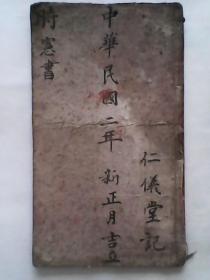 中華民國二年 新正月吉立
時憲書
仁儀堂記